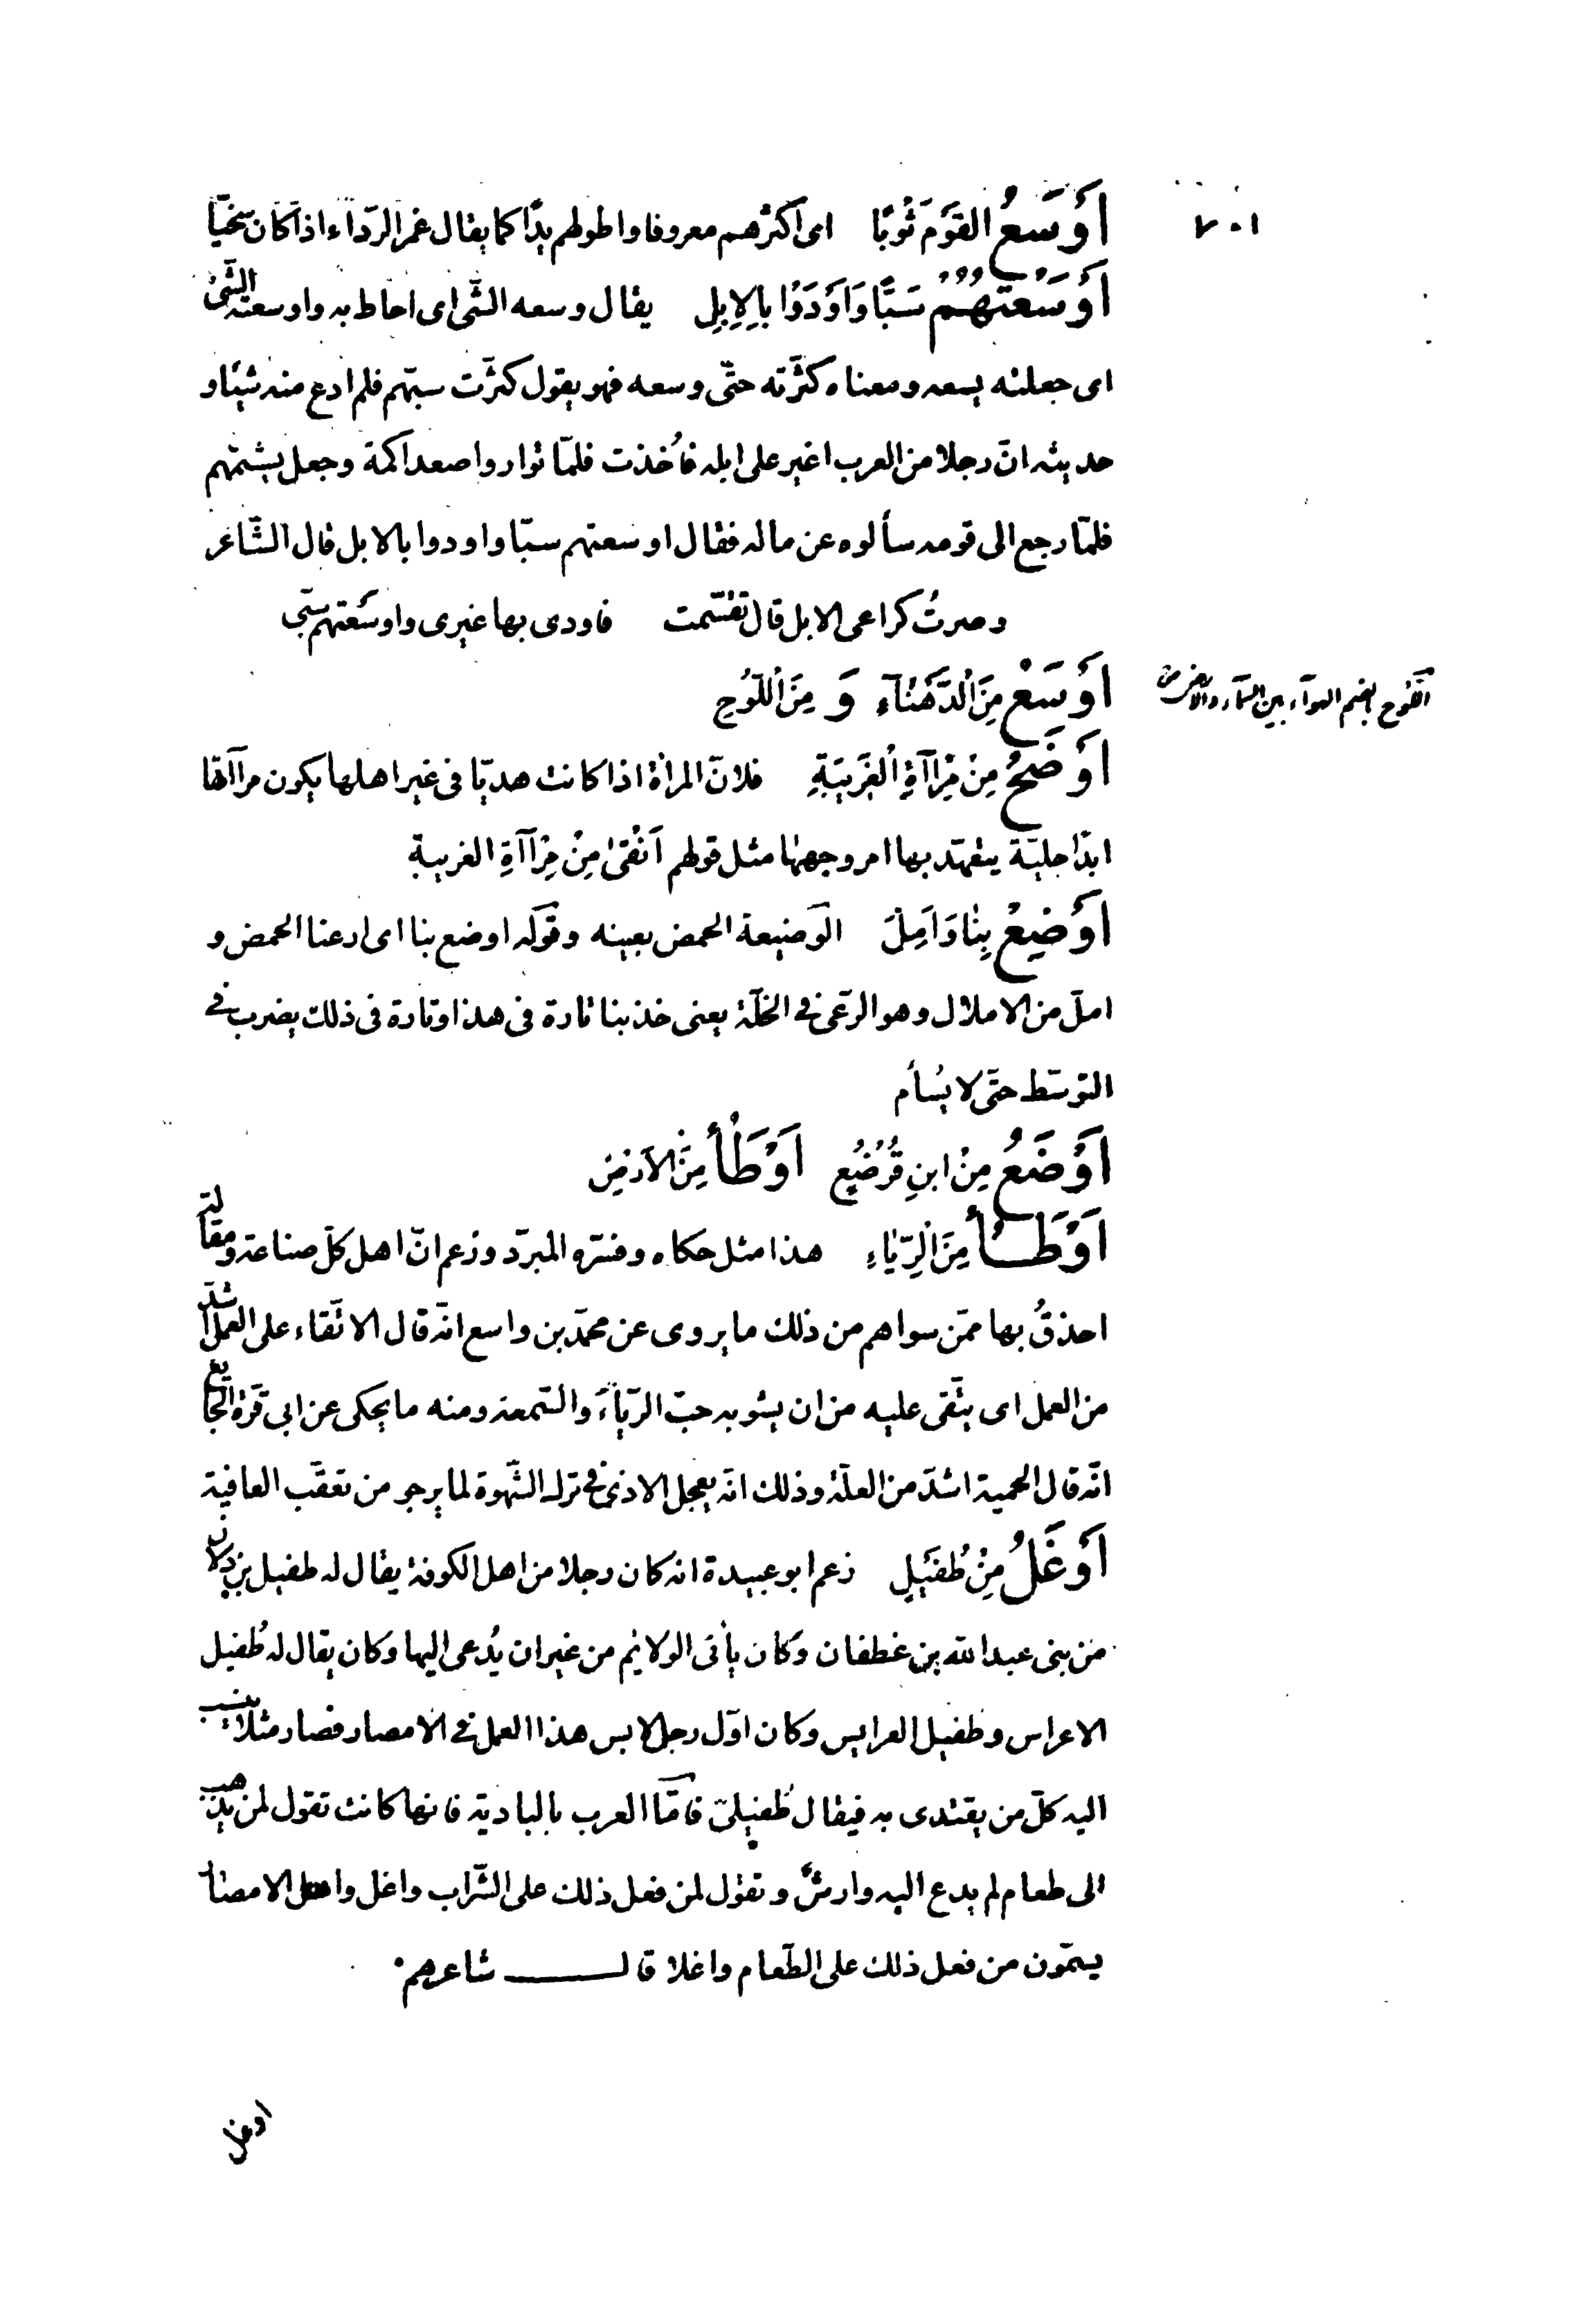 ٧٠١
أَوْسَعُ القَوْمِ ثَوْبًا اى اكثرهم معروفا واطولهم يدًا كما يقال غمر الرّداء اذا كان سخيّا
أَوْسَعْتُهُمْ سَبًّا وَاَوْدَوْا بِالاِبِلِ يقال وسعه الشّى اى احاط به واوسعته الشّئ
اى جعلته يسعه ومعناه كثّرته حتّى وسعه فهو يقول كثّرت سبّهم فلم ادع منه شيئا و
حديثه انّ رجلا من العرب اغير على ابله فأُخذت فلمّا تواروا صعد اكمة وجعل يشتمهم
فلمّا رجع الى قومه سألوه عن ماله فقال اوسعتهم سبّا واودوا بالابل قال الشّاعر
وصرتُ كراعى الابل قال تقسّمت فاودى بها غيرى واوسَعتهم سبّى
أَوْسَعْ مِنَ الدَّهْنَآءِ وَ مِنَ اللَّوُحِ
اللّوح بضم الهوآء بين السّمآء والارض
أَوْضَحُ مِنْ مِرْآةِ الْغَرِيبَةِ فلانّ المرأة اذا كانت هديّا فى غير اهلها يكون مرآتها
ابدًا جليّة يتعهّد بها امر وجهها مثل قولهم اَنْقىٰ مِنْ مِرْآةِ الغريبة
أَوْضِعْ بِنَا وَاَمِلَّ الوَضيعة الحمض بعينه وقوله اوضع بنا اى ارعنا الحمض و
املّ من الاملال وهو الرّعى فى الخلّة يعنى خذ بنا تارة فى هذا وتارة فى ذلك يضرب فى
التوسّط حتّى لا يُسأم
اَوْضَعُ مِنْ ابنِ قُرْضُعٍ اَوْطَأُ مِنَ الاَرْضِ
اَوْطَأُ مِنَ الرِّيَاءِ هذا مثل حكاه وفسّره المبرّد وزعم انّ اهل كلّ صناعة ومقالة
احذقُ بها ممّن سواهم من ذلك ما يروى عن محمّد بن واسع انّه قال الاتّقاء على العمل اشدّ
من العمل اى يتّقى عليه من ان يشوبه حبّ الرّياءَ والسّمعة ومنه ما يحكى عن ابى قرّة الجايع
انّه قال الحمية اشدّ من العلّة وذلك انّه يعجل الاذى فى ترك الشّهوة لما يرجو من تعقّب العافية
أَوْغَلُ مِنْ طُفَيْلٍ زعم ابو عبيدة انه كان رجلا من اهل الكوفة يقال له طفيل بن دلال
من بنى عبد الله بن غطفان وكان يأتى الولايم من غير ان يُدعى اليها وكان يقال له طُفيل
الاعراس وطفيل العرايس وكان اوّل رجل لابس هذا العمل فى الامصار فصار مثلا ينسب
اليه كلّ من يقتدى به فيقال طُفَيلىّ فامّا العرب بالبادية فانها كانت تقول لمن يذهب
الى طعام لم يدع اليه وارشٌ وتقول لمن فعل ذلك على الشّراب واغل واهل الامصار
يسمّون من فعل ذلك على الطّعام واغلا قالـــــــ شاعرهم
اوغل